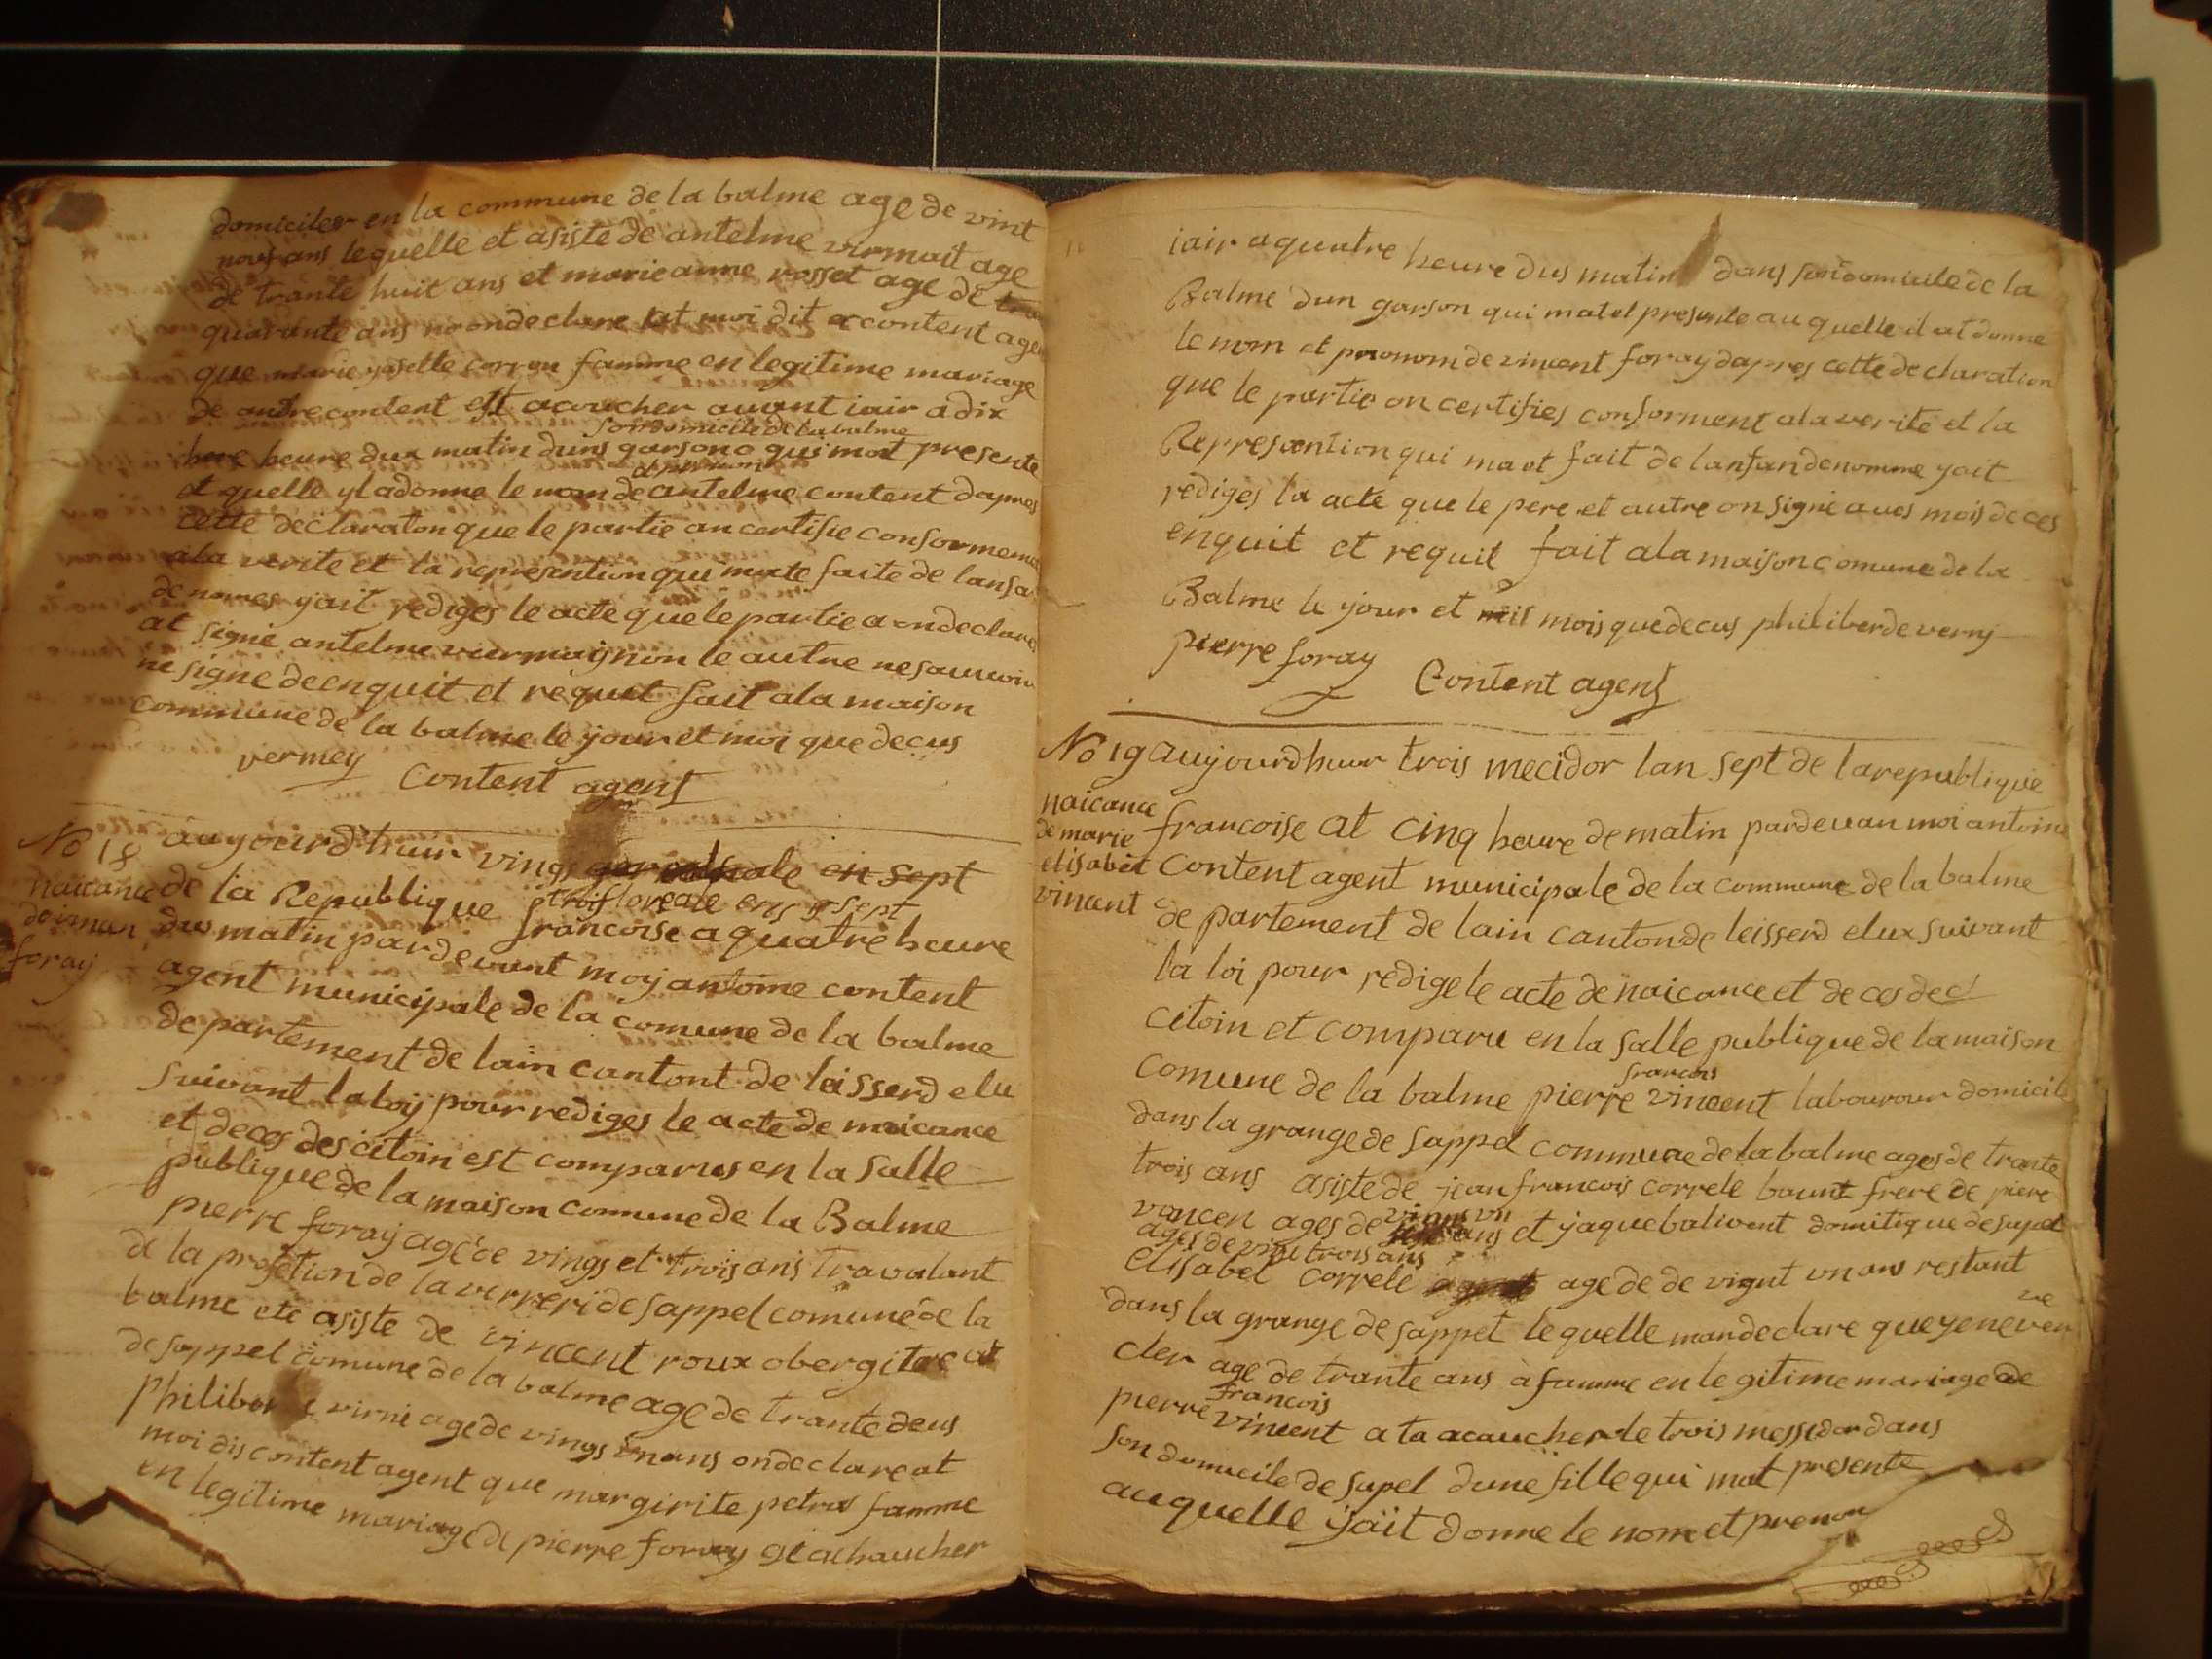 domiciler en la commune de la balme age de vint
nouf ans lequelle et asiste de antelme virmait age
de trante huit ans et marie anne rosset age de
quarante ans on declare at moi dit a content agen
que marie corron famme en legitime mariage
de antre content est acoucher auant iair a dix
son domicile de la balme
heure dux matin duns garsono qui mot presente
prenom
at quelle yl adonne le nom de antelme content dapres
cette declaraton que le partie an certifie conformemen
ala verite et la represention qui mate faite de lanfa
de nomes yait rediges le acte que le partie a on declare
at signe antelme viermay non le autre ne sauoir
ne signe de enquit et requit fait ala maison
commune de la balme le jour et moi que de cus
vermey content agent
No 18 aujourd'huir vings floreale en sept
trois floreale ens 7 sept
naicance de la Republique francoise a quatre heure
de iman dus matin pardevant moy antoine content
foray agent municipale de la comune de la balme
departement de lain cantont de leisserd elu
suivant la loy pour rediges le acte de naicance
et de ces des citoin est comparus en la salle
publique de la maison commune de la Balme
pierre foray age de vings et trois ans travalant
de la profetion de la verreri de sappel comune de la
balme ete asiste de vincent roux obergitre at
de sappel comune de la balme age de trante deus
philiber virni age de vings un ans on declare at
moi dis content agent que margirite petrus famme
en legitime mariage de pierre foray at achaucher
iair a quatre heure dus matin dans son domicile de la
Balme dun garson qui matet presente au quelle il at donne
le nom et pronom de vincent foray dapres cette declaration
que le partie on certifies conforment ala verite et la
Represention qui ma et fait de lanfan denomme yait
rediges la acte que le pere et autre on signe aues mois de ces
enquit et requit fait ala maison comune de la
Balme le jour et mois que de cus philiber de verny
pierre foray Content agent
No 19 aujourdhuir trois mecidor lan sept de la republique
naicance francoise at cinq heure de matin pardeuan moi antoine
de marie
elisabet content agent municipale de la commune de la balme
vincent de partement de lain canton de leisserd elux suivant
la loi pour redige le acte de naicance et de ces de d
citoin et comparu en la salle publique de la maison
francois
comune de la balme pierre vincent labourour domicil
dans la grange de sappel commune de la balme ages de trante
trois ans asiste de jean francois correle baunt frere de piere
vincen ages de vings un ans et jaque balivent domitique de supel
ages de vint trois ans
elisabel correle age de de vignt un ans restant
dans la grange de sappel le quelle man declare que yene ven
cler age de trante ans à famme en legitime mariage de
francois
pierre vincent a ta acaucher le trois messidor dans
son domicile de supel dune fille qui mat presente
auquelle yait donne le nom et prenom